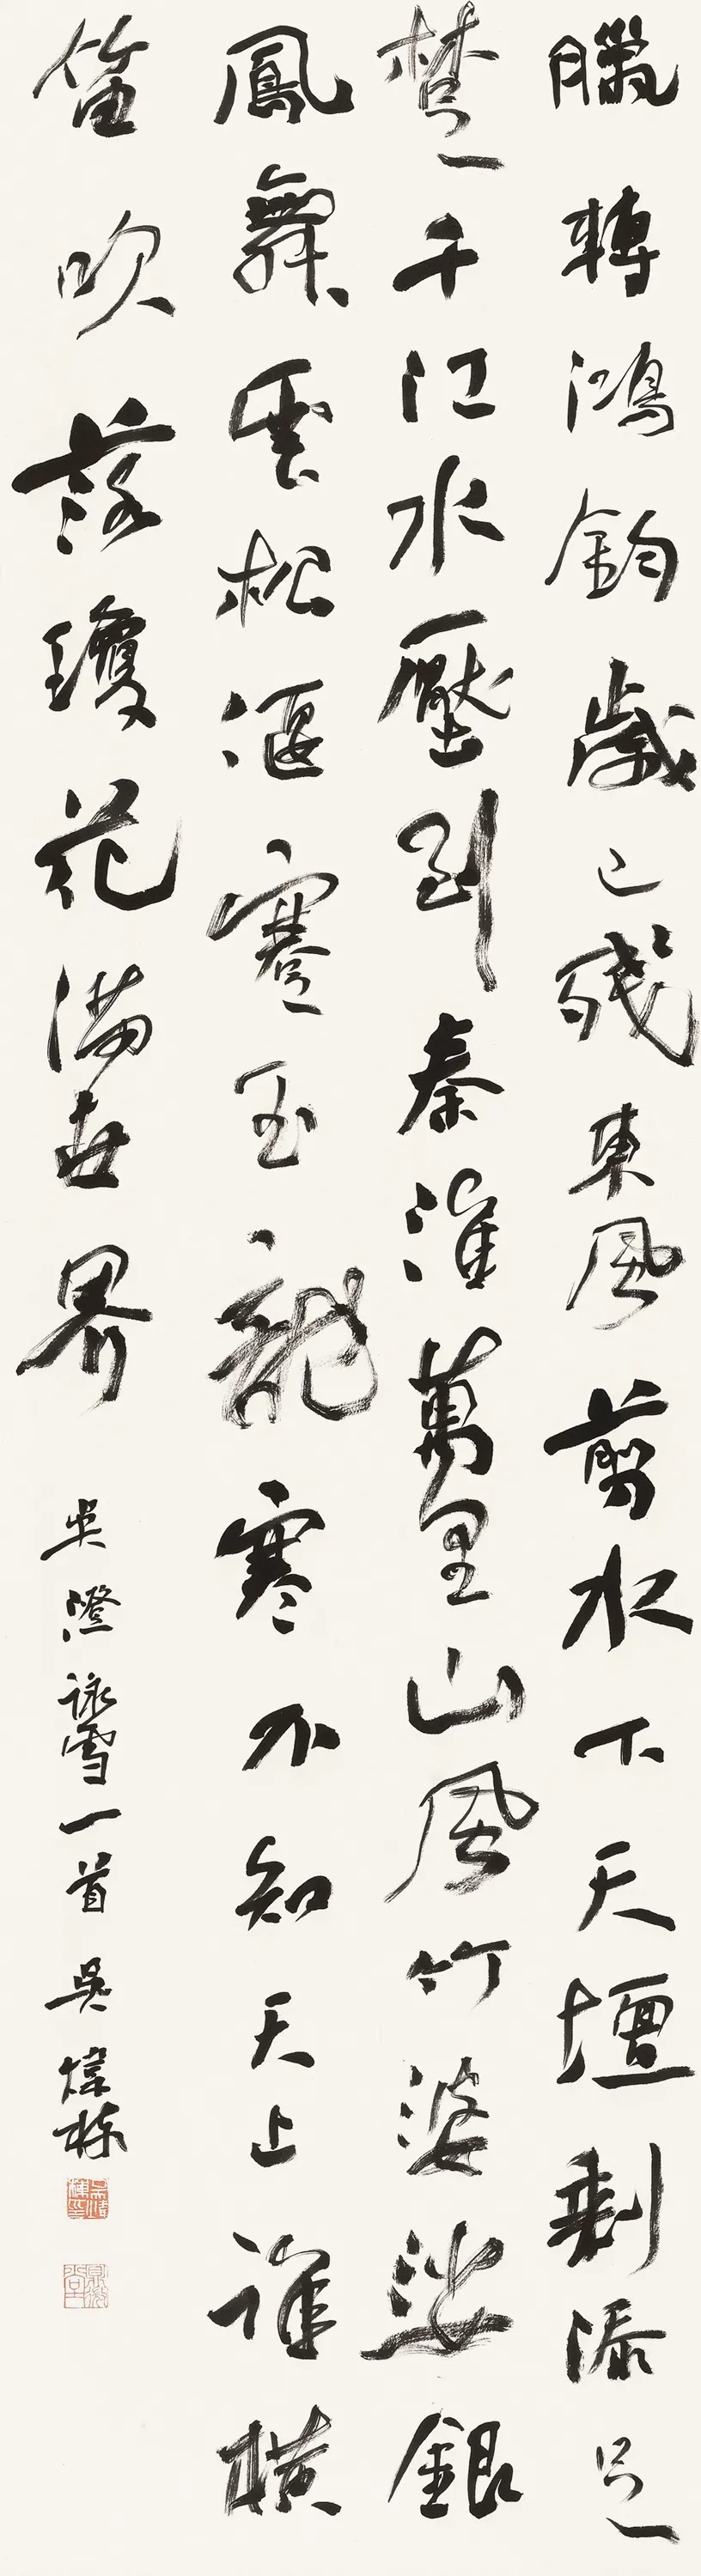 臘轉鴻鈞歲已殘東風剪水下天壇剩添足
楚千江水壓到秦淮萬里山風竹婆娑銀
鳳舞雲松偃蹇玉龍寒不知天上誰橫
笛吹落瓊花滿世界
吳澄詠雪一首 吳煒棟